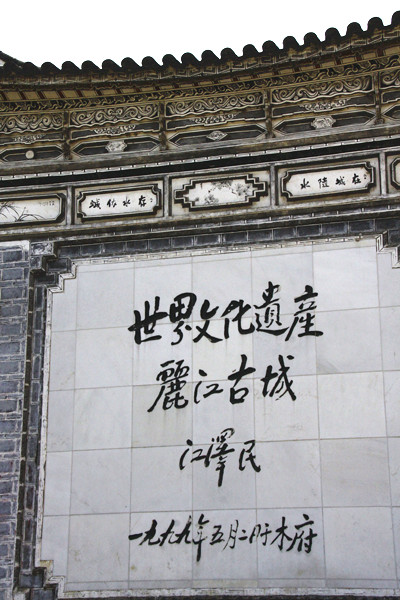 城依水存 水隨城在
世界文化遺産
麗江古城
江澤民
一九九九年五月二日于木府